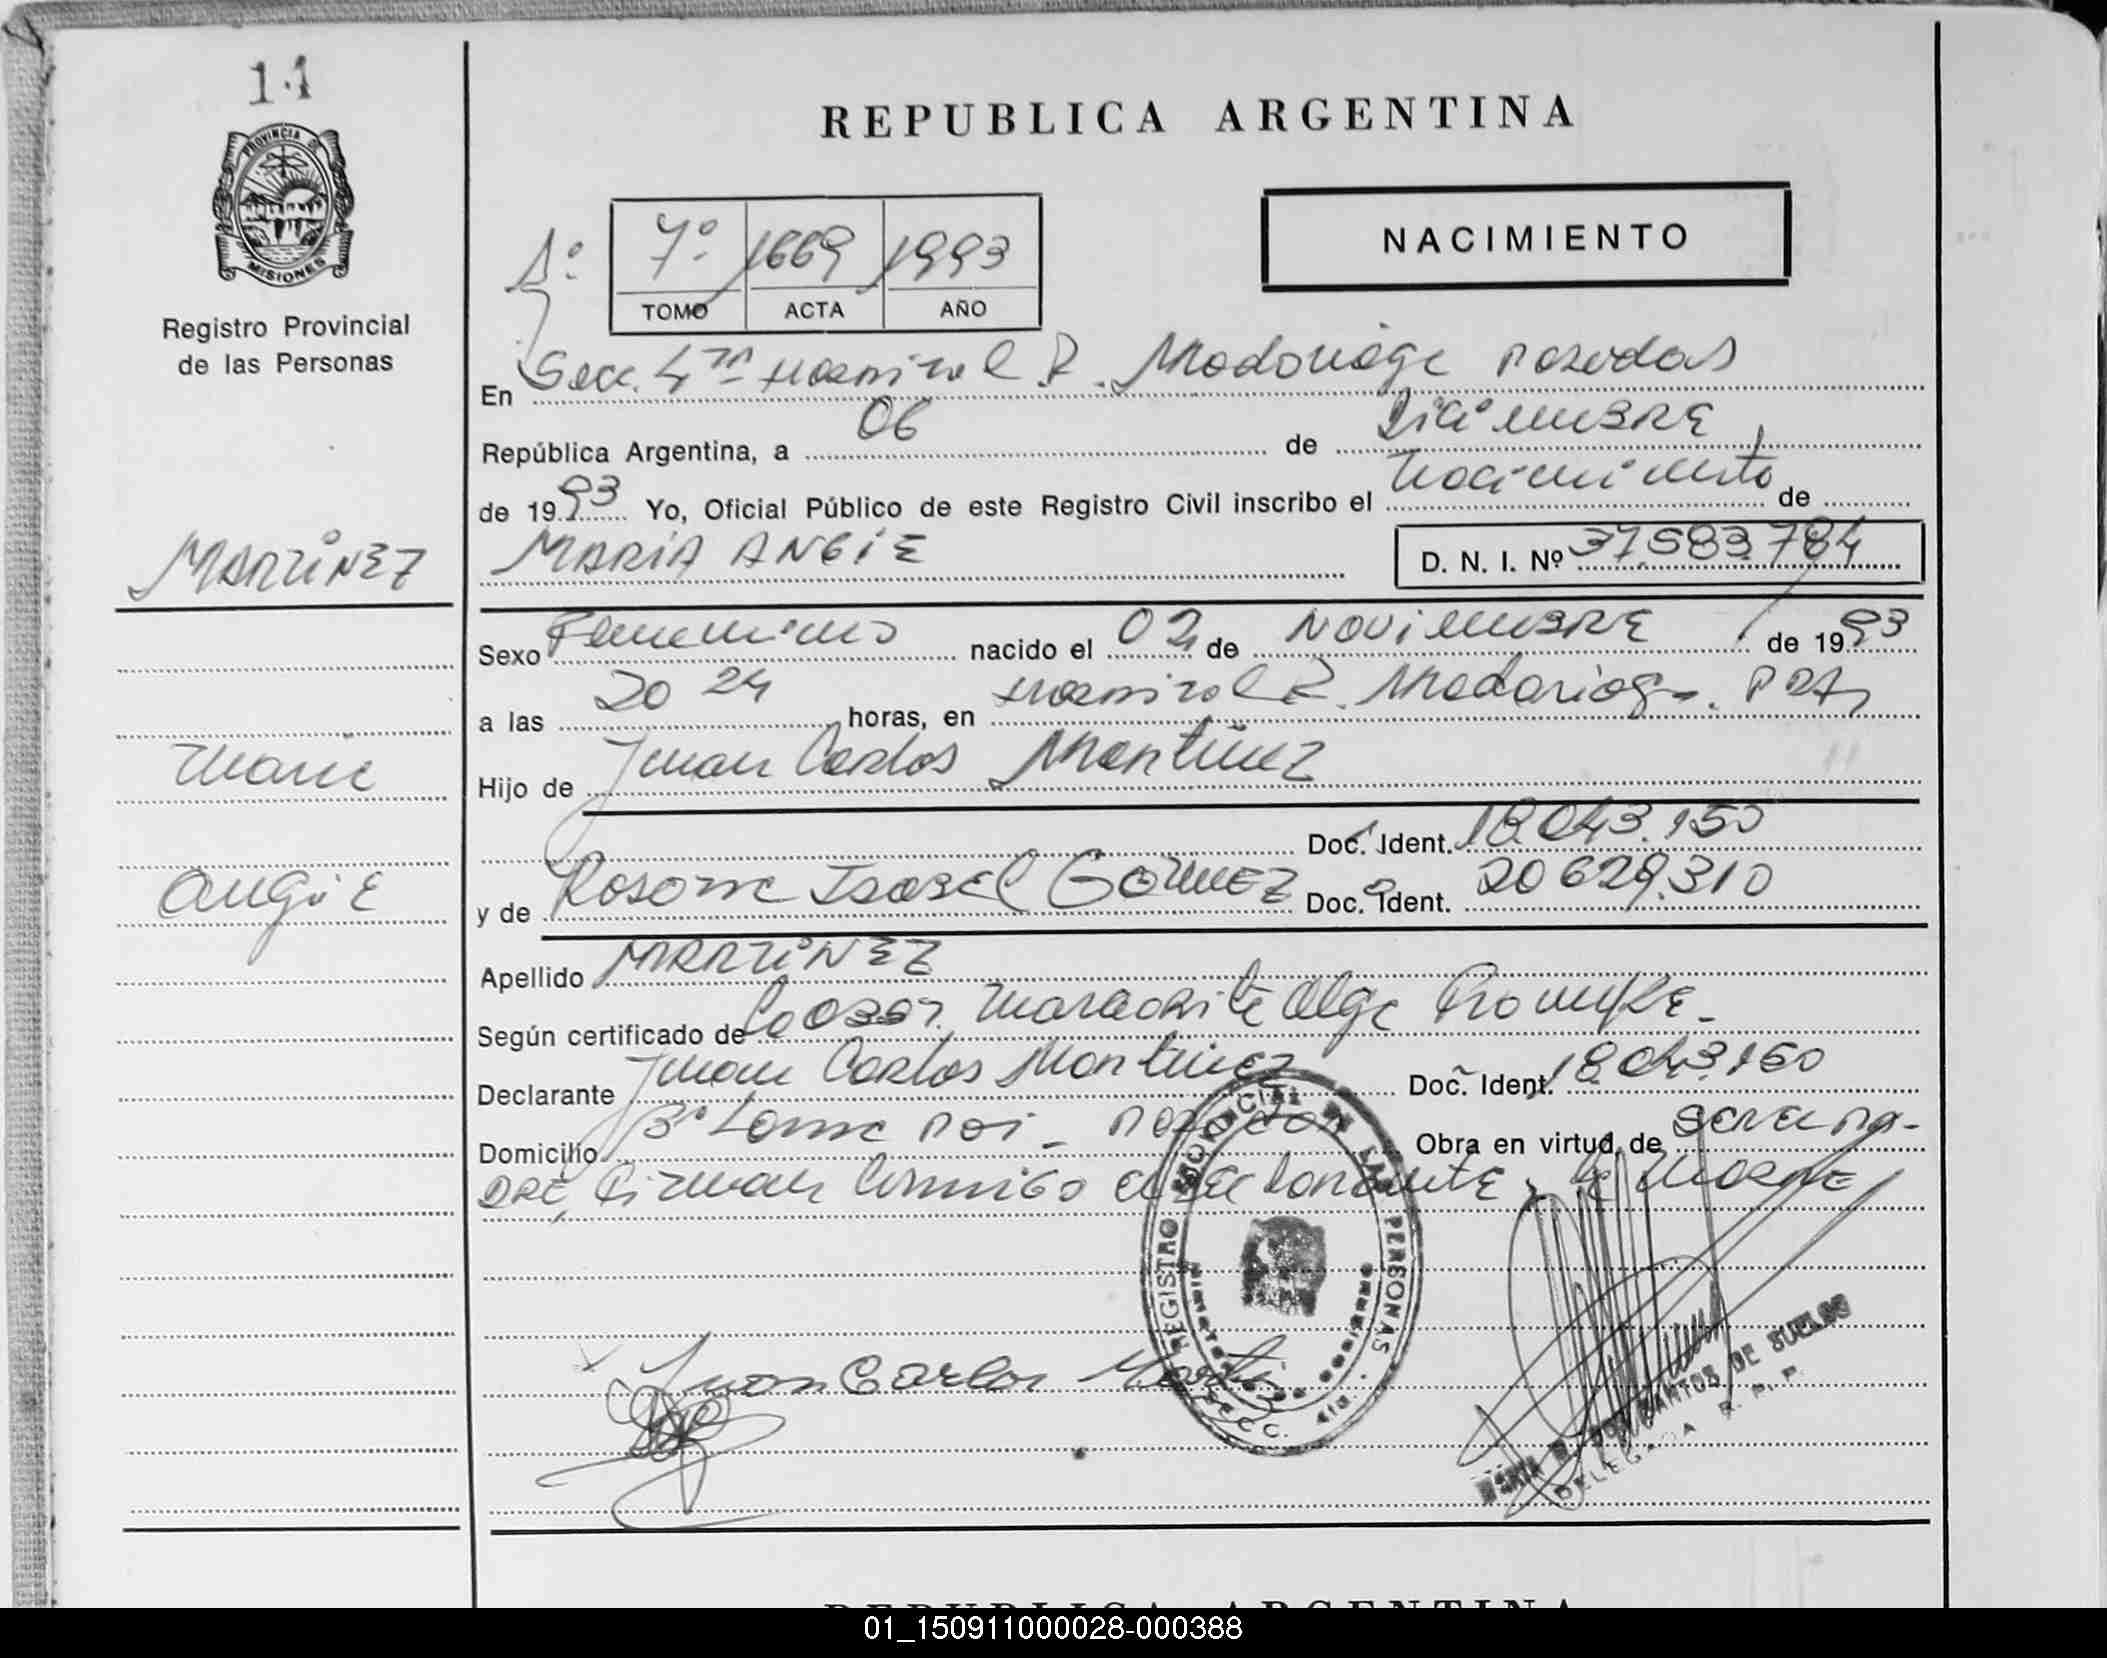 11
PROVINCIA DE
MISIONES
Registro Provincial
de las Personas
REPUBLICA ARGENTINA
NACIMIENTO
7º 1669 1993
TOMO ACTA AÑO
En Secc. 4ta Hospital R. Madariaga Posadas
República Argentina, a 06 de Diciembre
de 1993 Yo, Oficial Público de este Registro Civil inscribo el nacimiento de
MARIA ANGIE D. N. I. Nº 37.583.784
MARTINEZ
Maria
Angie
Sexo Femenino nacido el 02 de Noviembre de 1993
a las 20 24 horas, en Hospital R. Madariaga. Pdas
Hijo de Juan Carlos Martinez
Doc. Ident. 18.043.150
y de Rosana Isabel Gomez Doc. Ident. 20.629.310
Apellido MARTINEZ
Según certificado de Margarita Olga
Declarante Juan Carlos Martinez Doc. Ident. 18.043.150
Domicilio Posadas Obra en virtud de ser el pa-
dre, Firman conmigo el declarante y la madre
REGISTRO PROVINCIAL DE LAS PERSONAS
Juan Carlos Martinez
SANTOS DE SUELDO
DELEGADA R. P. P.
REPUBLICA ARGENTINA
01_150911000028-000388